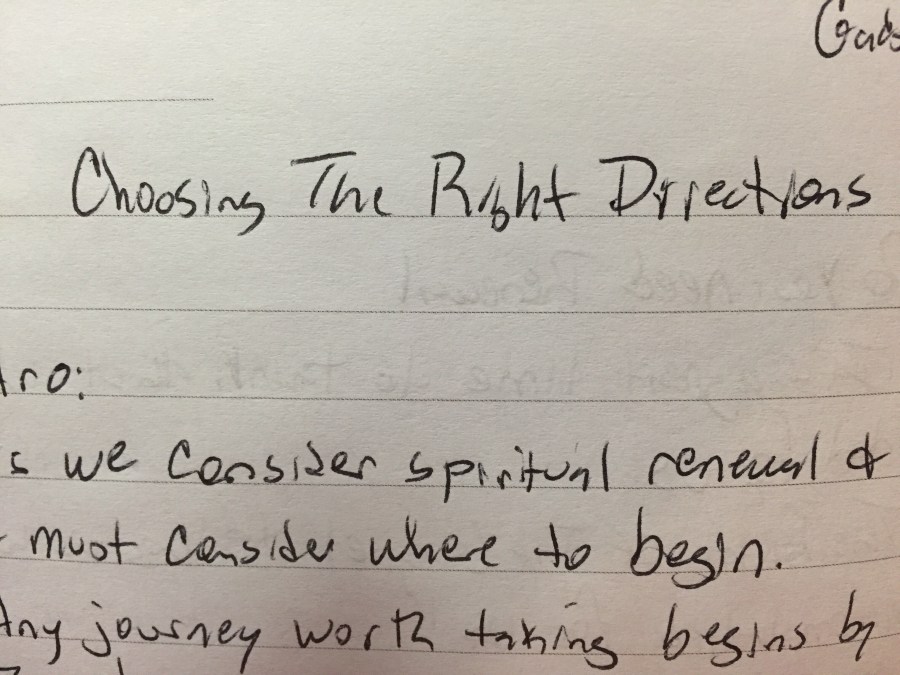 Choosing The Right Directions
tro:
s we consider spiritual renewal &
must consider where to begin.
Any journey worth taking begins by